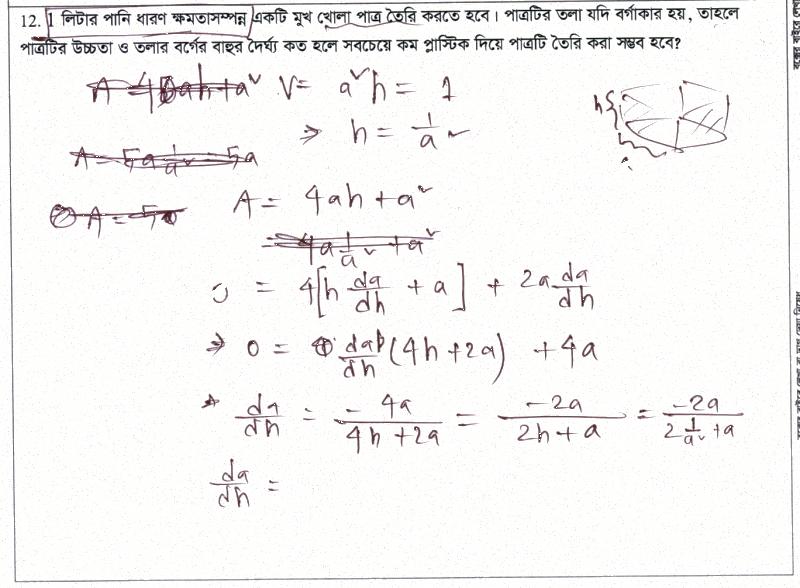 12. 1 লিটার পানি ধারণ ক্ষমতাসম্পন্ন একটি মুখ খোলা পাত্র তৈরি করতে হবে। পাত্রটির তলা যদি বর্গাকার হয়, তাহলে
পাত্রটির উচ্চতা ও তলার বর্গের বাহুর দৈর্ঘ্য কত হলে সবচেয়ে কম প্লাস্টিক দিয়ে পাত্রটি তৈরি করা সম্ভব হবে?
V = a²h = 1
⇒ h = 1/a²
A = 4ah + a²
0 = 4[h da/dh + a] + 2a da/dh
⇒ 0 = da/dh (4h + 2a) + 4a
⇒ da/dh = -4a/(4h + 2a) = -2a/(2h + a) = -2a/(2 1/a² + a)
da/dh =